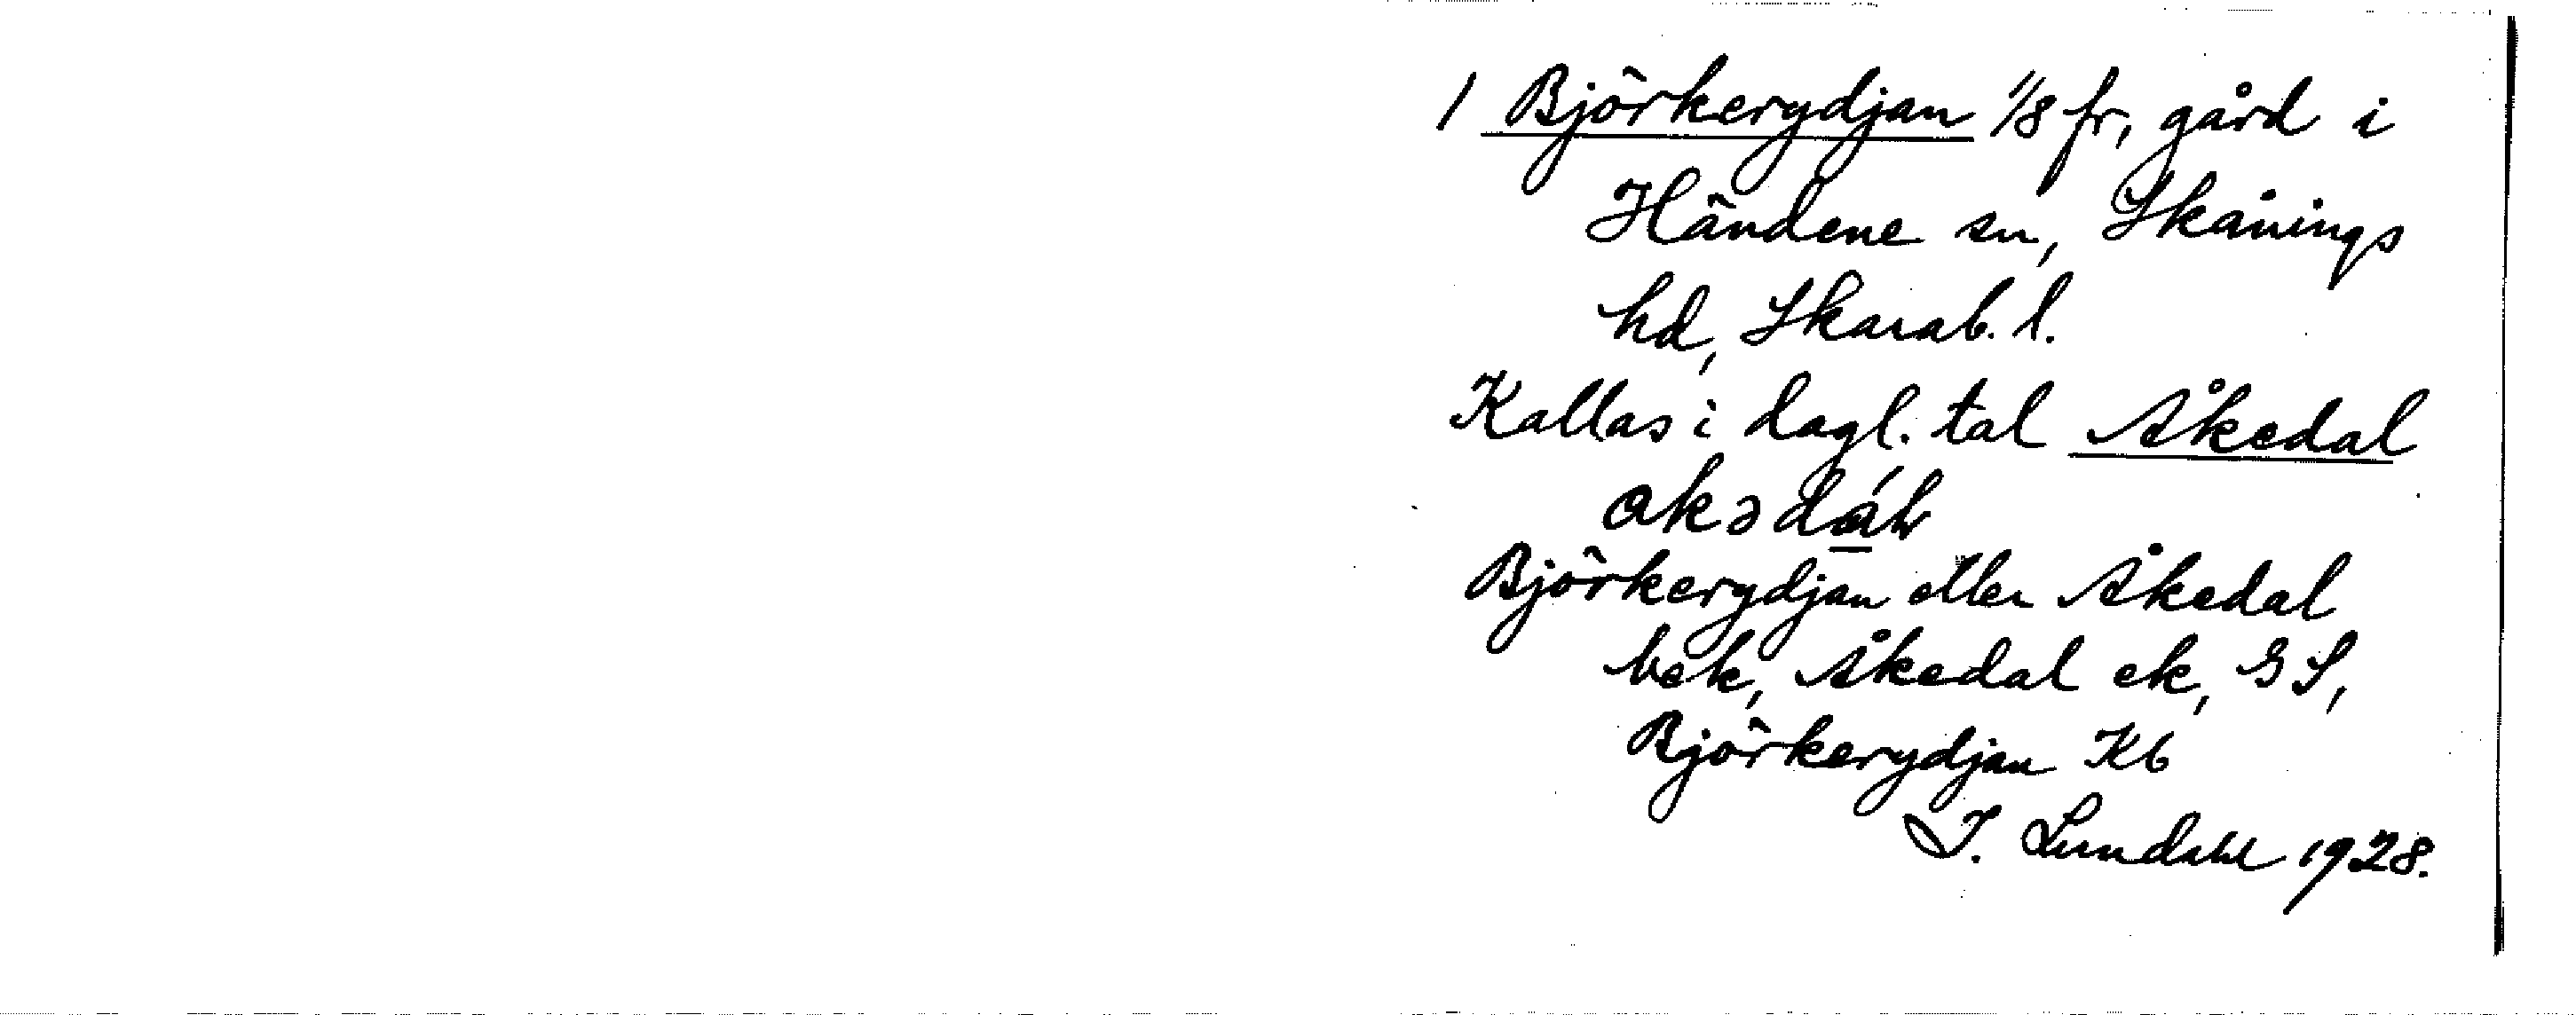 1 Björkerydjan 1/8 fr, gård i
Händene sn, Skånings
hd, Skarab. l.
Kallas i dagl. tal Åkedal
Björkerydjan eller Åkedal
bek, Åkedal ek, GS,
Björkerydjan Kb
I. Lundahl 1928.